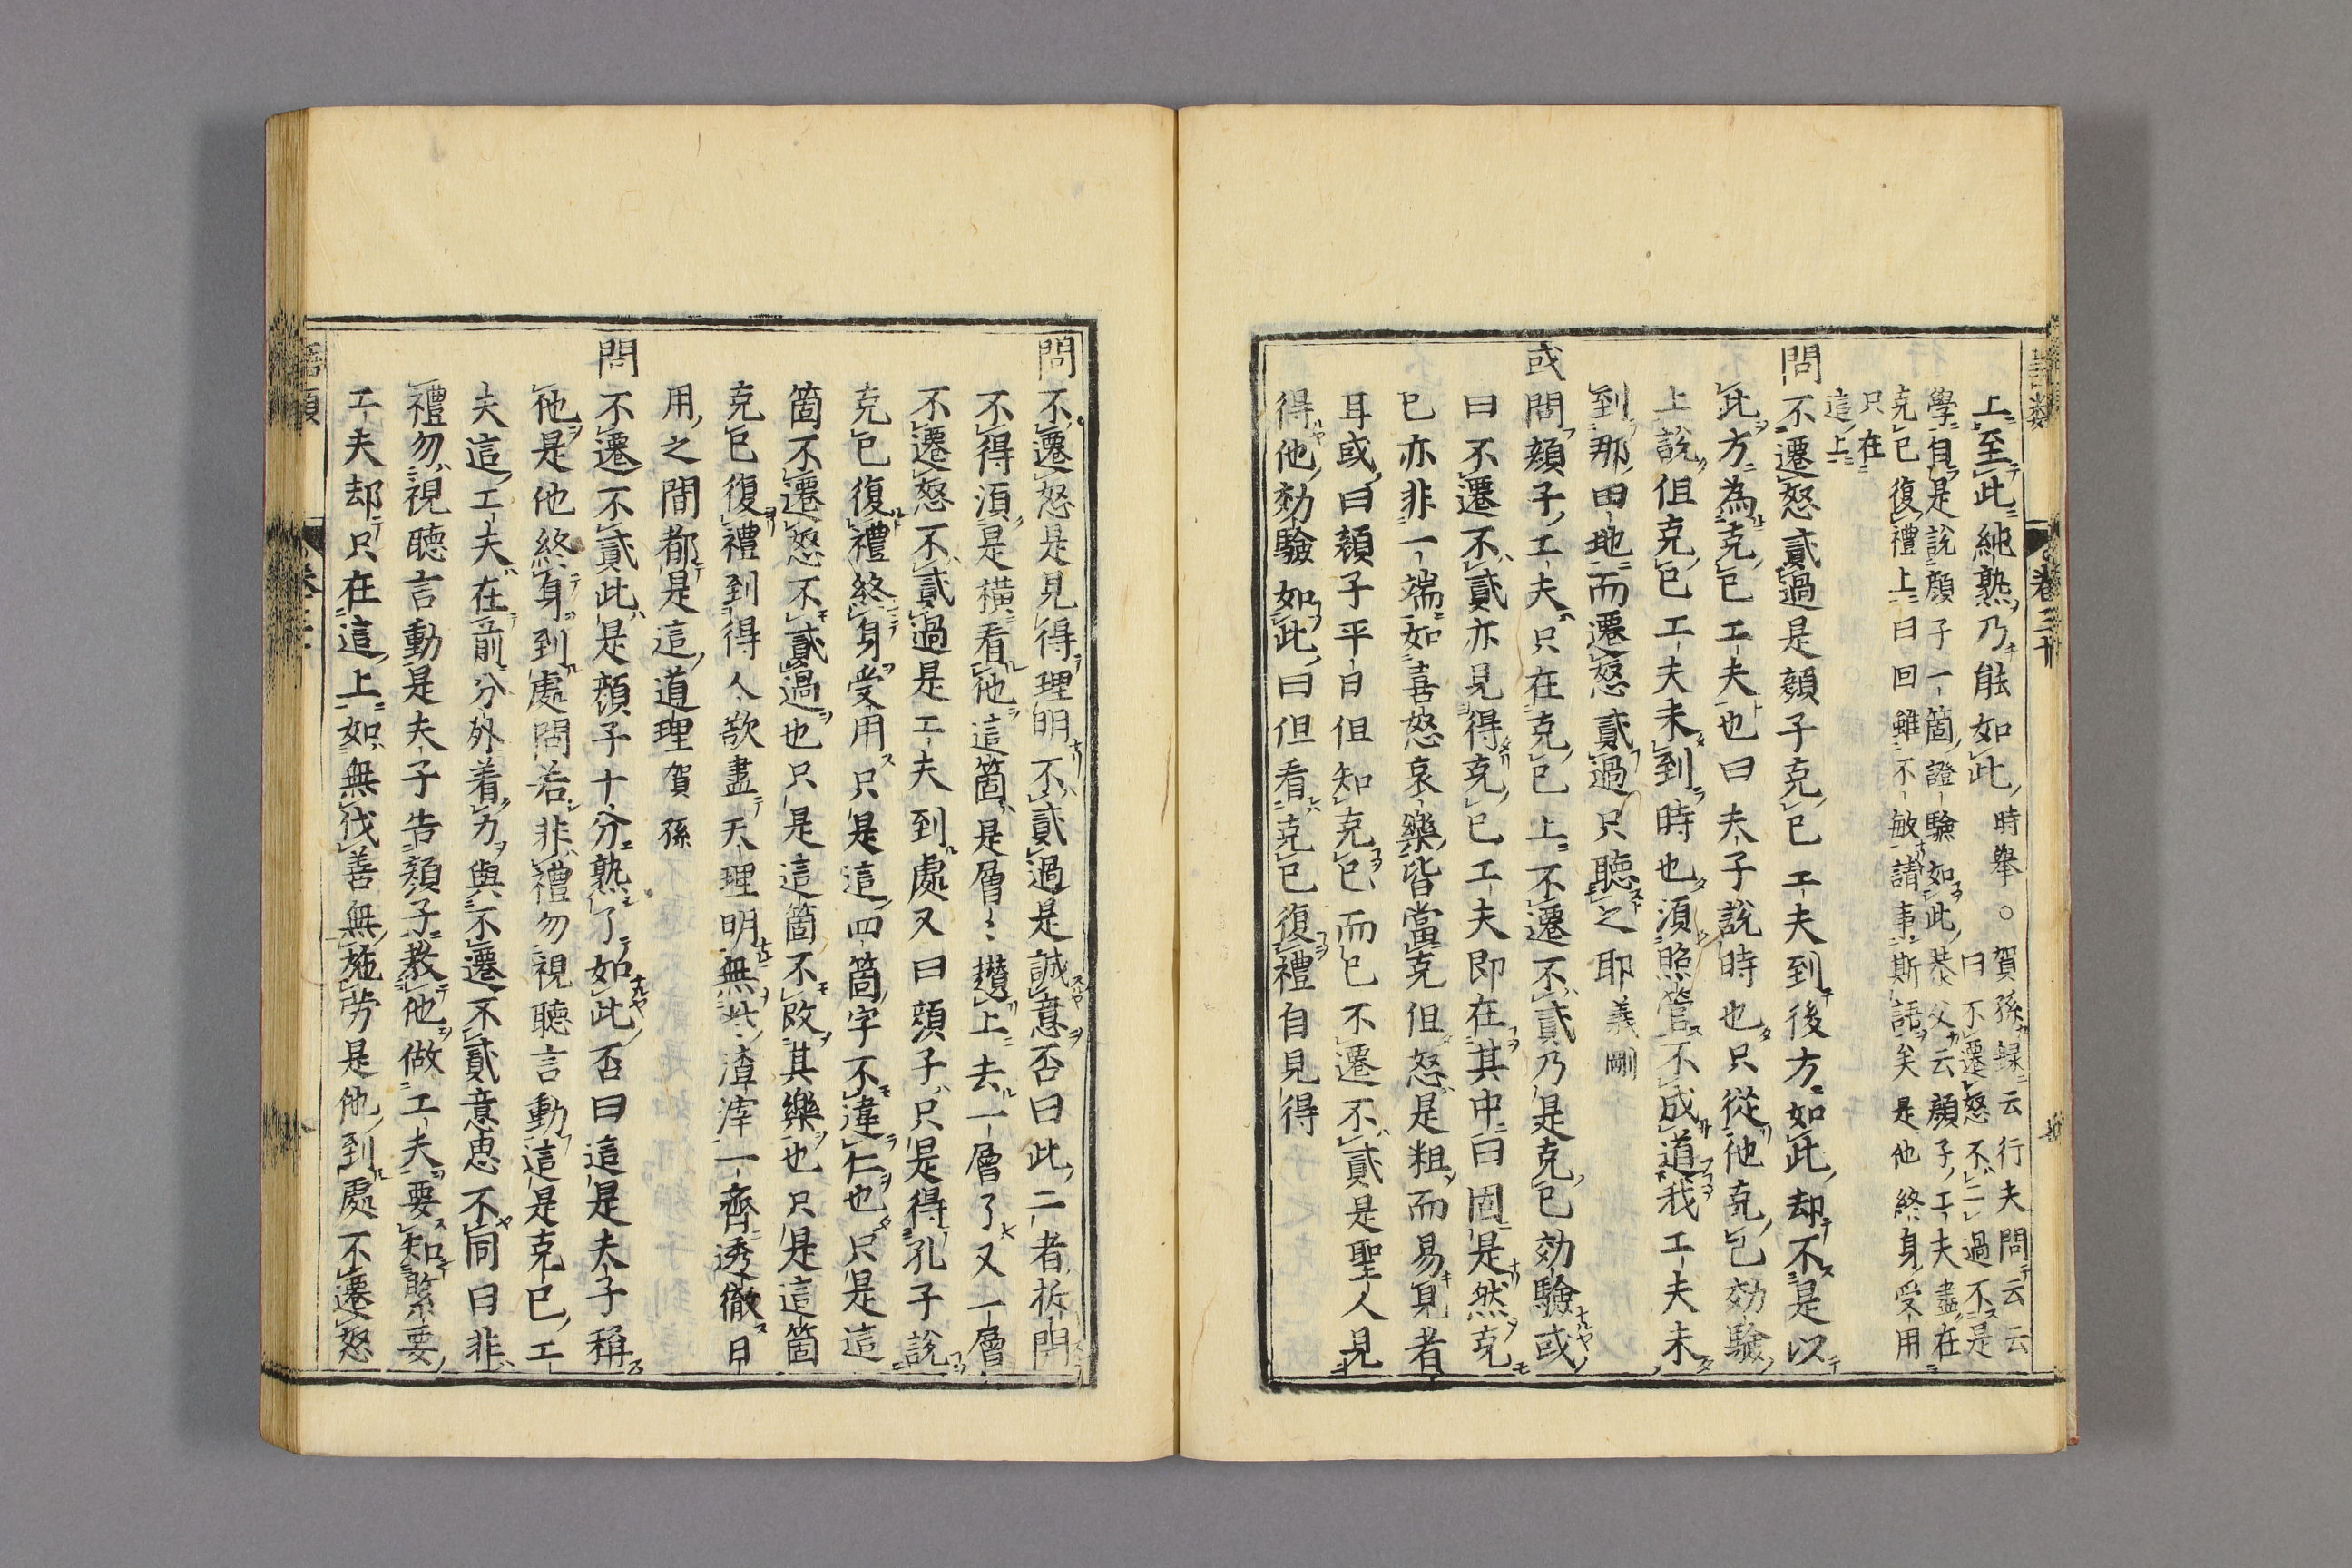 上至此純熟乃能如此時舉○賀孫録云行夫問云云
曰不遷怒不二過不是
學自是說顔子一箇證驗如此恭父云顔子工夫盡在
克已復禮上曰回雖不敏請事斯語矣是他終身受用
只在
這上
問不遷怒貳過是顔子克已工夫到後方如此却不是以
此方為克已工夫也曰夫子說時也只從他克已効驗
上說但克已工夫未到時也須照管不成道我工夫未
到那田地而遷怒貳過只聽之耶義剛
或問顔子工夫只在克已上不遷不貳乃是克已効驗或
曰不遷不貳亦見得克已工夫即在其中曰固是然克
已亦非一端如喜怒哀樂皆當克但怒是粗而易見者
耳或曰顔子平日但知克已而已不遷不貳是聖人見
得他効驗如此曰但看克已復禮自見得
問不遷怒是見得理明不貳過是誠意否曰此二者拆開
不得須是橫看他這箇是層〻趲上去一層了又一層
不遷怒不貳過是工夫到處又曰顔子只是得孔子說
克已復禮終身受用只是這四箇字不違仁也只是這
箇不遷怒不貳過也只是這箇不改其樂也只是這箇
克已復禮到得人欲盡天理明無些渣滓一齊透徹日
用之間都是這道理賀孫
問不遷不貳此是顔子十分熟了如此否曰這是夫子稱
他是他終身到處問若非禮勿視聽言動這是克已工
夫這工夫在前分外着力與不遷不貳意思不同曰非
禮勿視聽言動是夫子告顔子教他做工夫要知緊要
工夫却只在這上如無伐善無施劳是他到處不遷怒
語類
卷三十